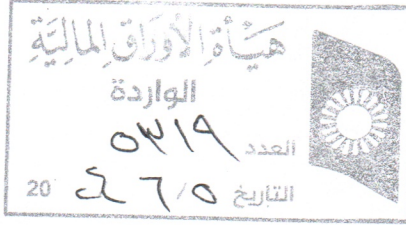 هيأة الأوراق المالية
الواردة
العدد ٥٣١٩
التاريخ ٦/٥ 20